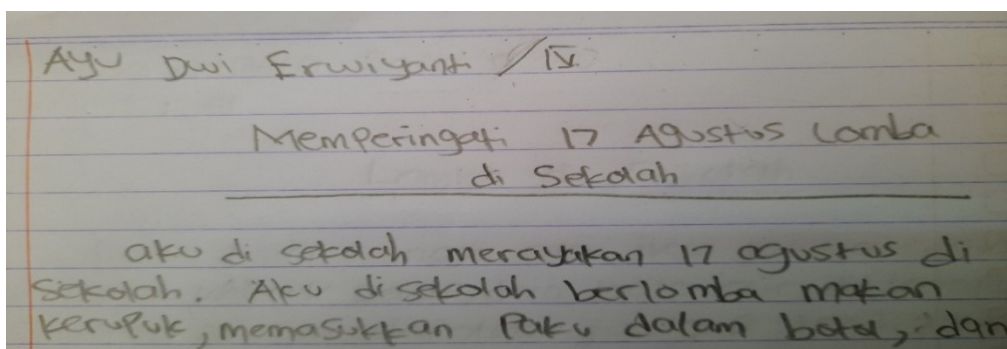 Ayu Dwi Erwiyanti / IV
Memperingati 17 Agustus Lomba
di Sekolah
aku di sekolah merayakan 17 agustus di
Sekolah. Aku di sekolah berlomba makan
kerupuk, memasukkan Paku dalam botol, dan